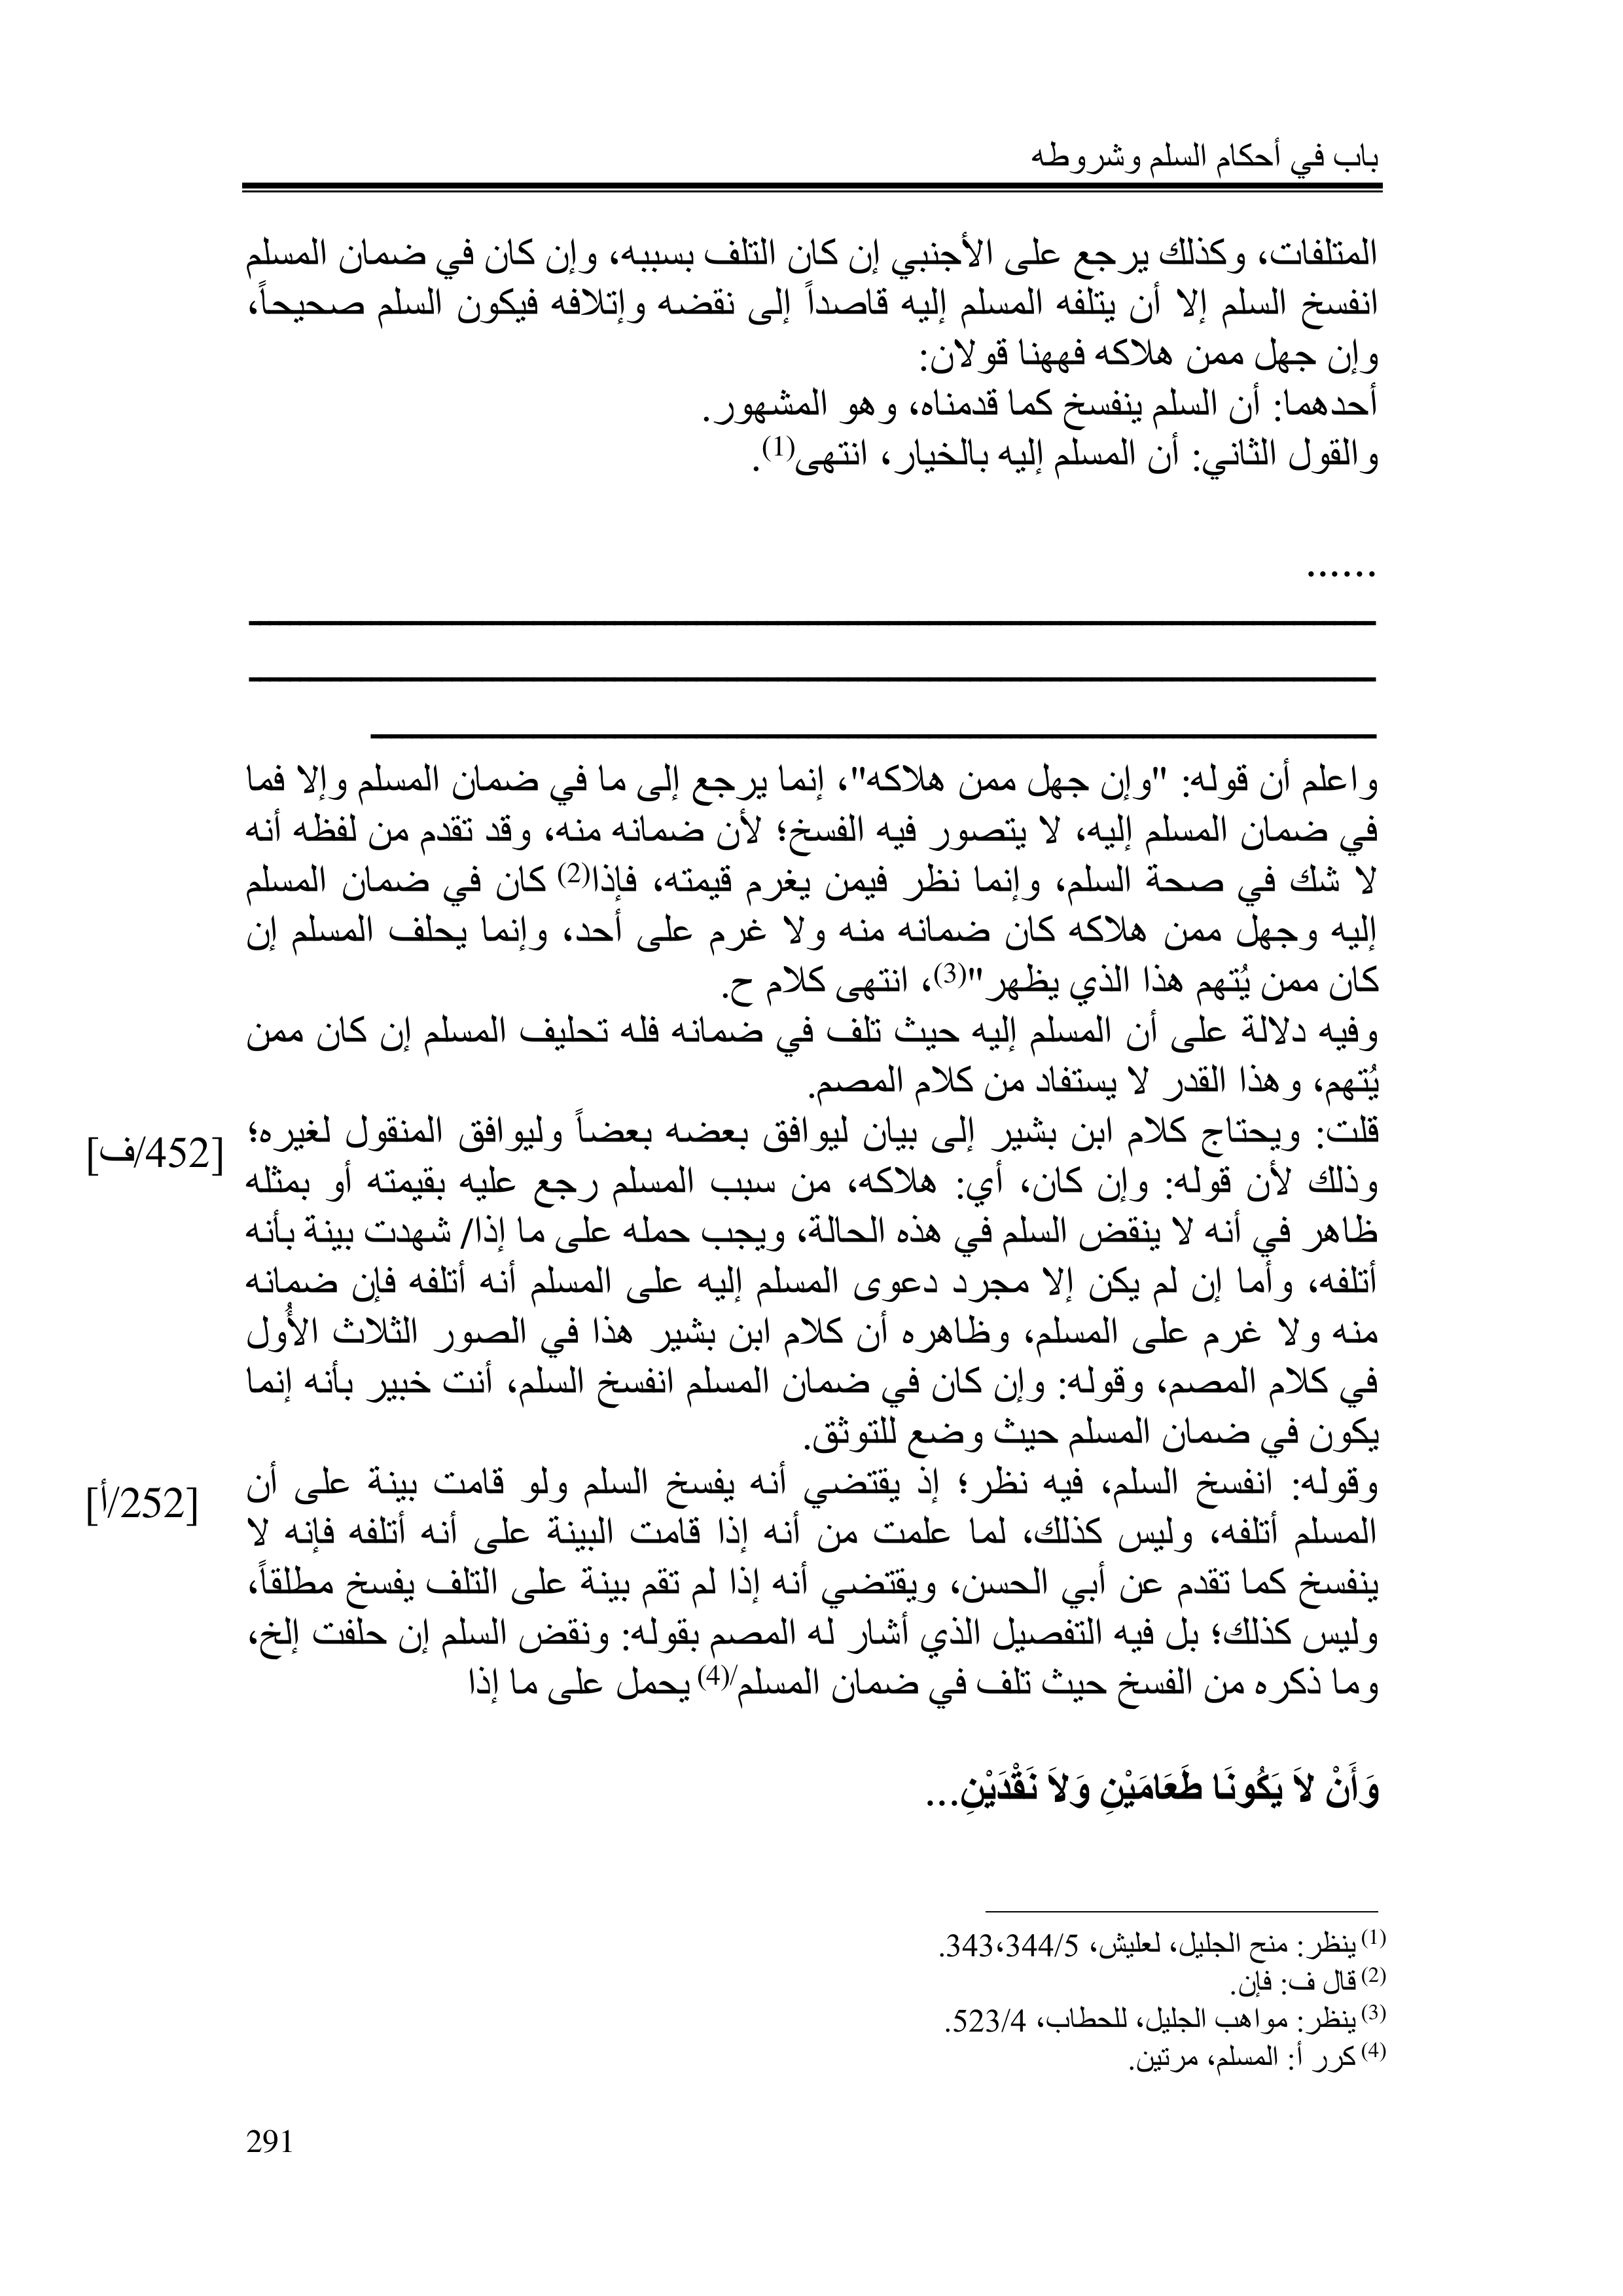 باب في أحكام السلم وشروطه
المتلفات، وكذلك يرجع على الأجنبي إن كان التلف بسببه، وإن كان في ضمان المسلم
انفسخ السلم إلا أن يتلفه المسلم إليه قاصداً إلى نقضه وإتلافه فيكون السلم صحيحاً،
وإن جهل ممن هلاكه فههنا قولان:
أحدهما: أن السلم ينفسخ كما قدمناه، وهو المشهور.
والقول الثاني: أن المسلم إليه بالخيار، انتهى(1).
......
واعلم أن قوله: "وإن جهل ممن هلاكه"، إنما يرجع إلى ما في ضمان المسلم وإلا فما
في ضمان المسلم إليه، لا يتصور فيه الفسخ؛ لأن ضمانه منه، وقد تقدم من لفظه أنه
لا شك في صحة السلم، وإنما نظر فيمن يغرم قيمته، فإذا(2) كان في ضمان المسلم
إليه وجهل ممن هلاكه كان ضمانه منه ولا غرم على أحد، وإنما يحلف المسلم إن
كان ممن يُتهم هذا الذي يظهر"(3)، انتهى كلام ح.
وفيه دلالة على أن المسلم إليه حيث تلف في ضمانه فله تحليف المسلم إن كان ممن
يُتهم، وهذا القدر لا يستفاد من كلام المصم.
قلت: ويحتاج كلام ابن بشير إلى بيان ليوافق بعضه بعضاً وليوافق المنقول لغيره؛
[452/ف]
وذلك لأن قوله: وإن كان، أي: هلاكه، من سبب المسلم رجع عليه بقيمته أو بمثله
ظاهر في أنه لا ينقض السلم في هذه الحالة، ويجب حمله على ما إذا/ شهدت بينة بأنه
أتلفه، وأما إن لم يكن إلا مجرد دعوى المسلم إليه على المسلم أنه أتلفه فإن ضمانه
منه ولا غرم على المسلم، وظاهره أن كلام ابن بشير هذا في الصور الثلاث الأُول
في كلام المصم، وقوله: وإن كان في ضمان المسلم انفسخ السلم، أنت خبير بأنه إنما
يكون في ضمان المسلم حيث وضع للتوثق.
وقوله: انفسخ السلم، فيه نظر؛ إذ يقتضي أنه يفسخ السلم ولو قامت بينة على أن
[252/أ]
المسلم أتلفه، وليس كذلك، لما علمت من أنه إذا قامت البينة على أنه أتلفه فإنه لا
ينفسخ كما تقدم عن أبي الحسن، ويقتضي أنه إذا لم تقم بينة على التلف يفسخ مطلقاً،
وليس كذلك؛ بل فيه التفصيل الذي أشار له المصم بقوله: ونقض السلم إن حلفت إلخ،
وما ذكره من الفسخ حيث تلف في ضمان المسلم/(4) يحمل على ما إذا
وَأَنْ لاَ يَكُونَا طَعَامَيْنِ وَلاَ نَقْدَيْنِ...
(1) ينظر: منح الجليل، لعليش، 343،344/5.
(2) قال ف: فإن.
(3) ينظر: مواهب الجليل، للحطاب، 523/4.
(4) كرر أ: المسلم، مرتين.
291